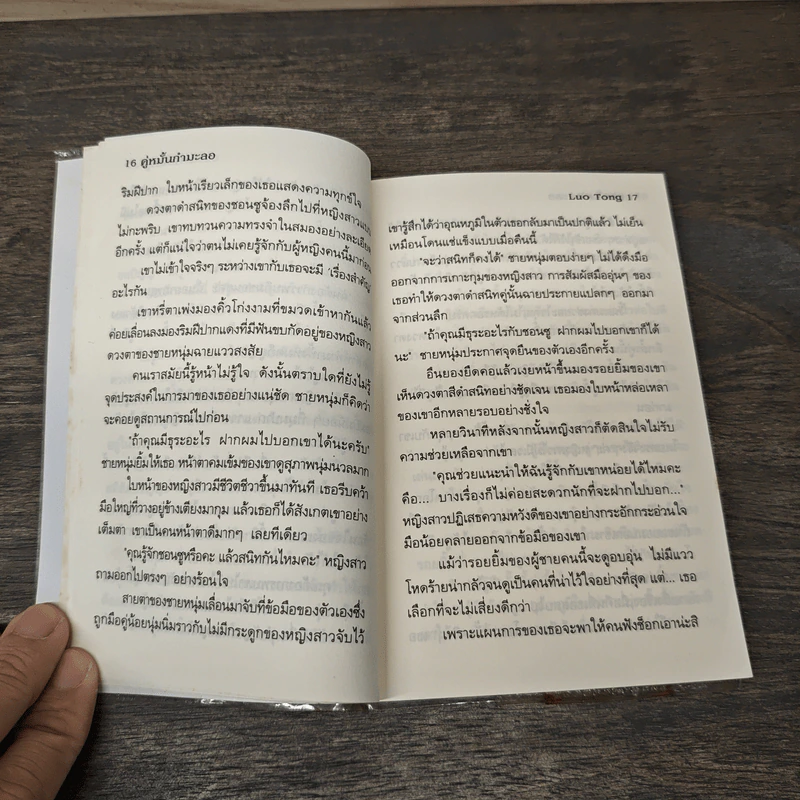 16 คู่หมั้นกำมะลอ
ริมฝีปาก ใบหน้าเรียวเล็กของเธอแสดงความทุกข์ใจ
ดวงตาดำสนิทของซอนซูจ้องลึกไปที่หญิงสาวแบบ
ไม่กะพริบ เขาทบทวนความทรงจำในสมองอย่างละเอียด
อีกครั้ง แต่ก็แน่ใจว่าตนไม่เคยรู้จักกับผู้หญิงคนนี้มาก่อน
เขาไม่เข้าใจจริงๆ ระหว่างเขากับเธอจะมี 'เรื่องสำคัญ'
อะไรกัน
เขาหรี่ตาเพ่งมองคิ้วโก่งงามที่ขมวดเข้าหากันแล้ว
ค่อยเลื่อนลงมองริมฝีปากแดงที่มีฟันขบกัดอยู่ของหญิงสาว
ดวงตาของชายหนุ่มฉายแววสงสัย
คนเราสมัยนี้รู้หน้าไม่รู้ใจ ดังนั้นตราบใดที่ยังไม่รู้
จุดประสงค์ในการมาของเธออย่างแน่ชัด ชายหนุ่มก็คิดว่า
จะคอยดูสถานการณ์ไปก่อน
"ถ้าคุณมีธุระอะไร ฝากผมไปบอกเขาได้นะครับ"
ชายหนุ่มยิ้มให้เธอ หน้าตาคมเข้มของเขาดูสุภาพนุ่มนวลมาก
ใบหน้าของหญิงสาวมีชีวิตชีวาขึ้นมาทันที เธอรีบคว้า
มือใหญ่ที่วางอยู่ข้างเตียงมากุม แล้วเธอก็ได้สังเกตเขาอย่าง
เต็มตา เขาเป็นคนหน้าตาดีมากๆ เลยทีเดียว
"คุณรู้จักซอนซูหรือคะ แล้วสนิทกันไหมคะ" หญิงสาว
ถามออกไปตรงๆ อย่างร้อนใจ
สายตาของชายหนุ่มเลื่อนมาจับที่ข้อมือของตัวเองซึ่ง
ถูกมือคู่น้อยนุ่มนิ่มราวกับไม่มีกระดูกของหญิงสาวจับไว้
Luo Tong 17
เขารู้สึกได้ว่าอุณหภูมิในตัวเธอกลับมาเป็นปกติแล้ว ไม่เย็น
เหมือนโดนแช่แข็งแบบเมื่อคืนนี้
"จะว่าสนิทก็คงได้" ชายหนุ่มตอบง่ายๆ ไม่ได้ดึงมือ
ออกจากการเกาะกุมของหญิงสาว การสัมผัสมืออุ่นๆ ของ
เธอทำให้ดวงตาดำสนิทคู่นั้นฉายประกายแปลกๆ ออกมา
จากส่วนลึก
"ถ้าคุณมีธุระอะไรกับซอนซู ฝากผมไปบอกเขาก็ได้
นะ" ชายหนุ่มประกาศจุดยืนของตัวเองอีกครั้ง
อึนยองยืดคอแล้วเงยหน้าขึ้นมองรอยยิ้มของเขา
เห็นดวงตาสีดำสนิทอย่างชัดเจน เธอมองใบหน้าหล่อเหลา
ของเขาอีกหลายรอบอย่างชั่งใจ
หลายวินาทีหลังจากนั้นหญิงสาวก็ตัดสินใจไม่รับ
ความช่วยเหลือจากเขา
"คุณช่วยแนะนำให้ฉันรู้จักกับเขาหน่อยได้ไหมคะ
คือ... บางเรื่องก็ไม่ค่อยสะดวกนักที่จะฝากไปบอก..."
หญิงสาวปฏิเสธความหวังดีของเขาอย่างกระอักกระอ่วนใจ
มือน้อยคลายออกจากข้อมือของเขา
แม้ว่ารอยยิ้มของผู้ชายคนนี้จะดูอบอุ่น ไม่มีแวว
โหดร้ายน่ากลัวจนดูเป็นคนที่น่าไว้ใจอย่างที่สุด แต่... เธอ
เลือกที่จะไม่เสี่ยงดีกว่า
เพราะแผนการของเธอจะพาให้คนฟังช็อกเอาน่ะสิ